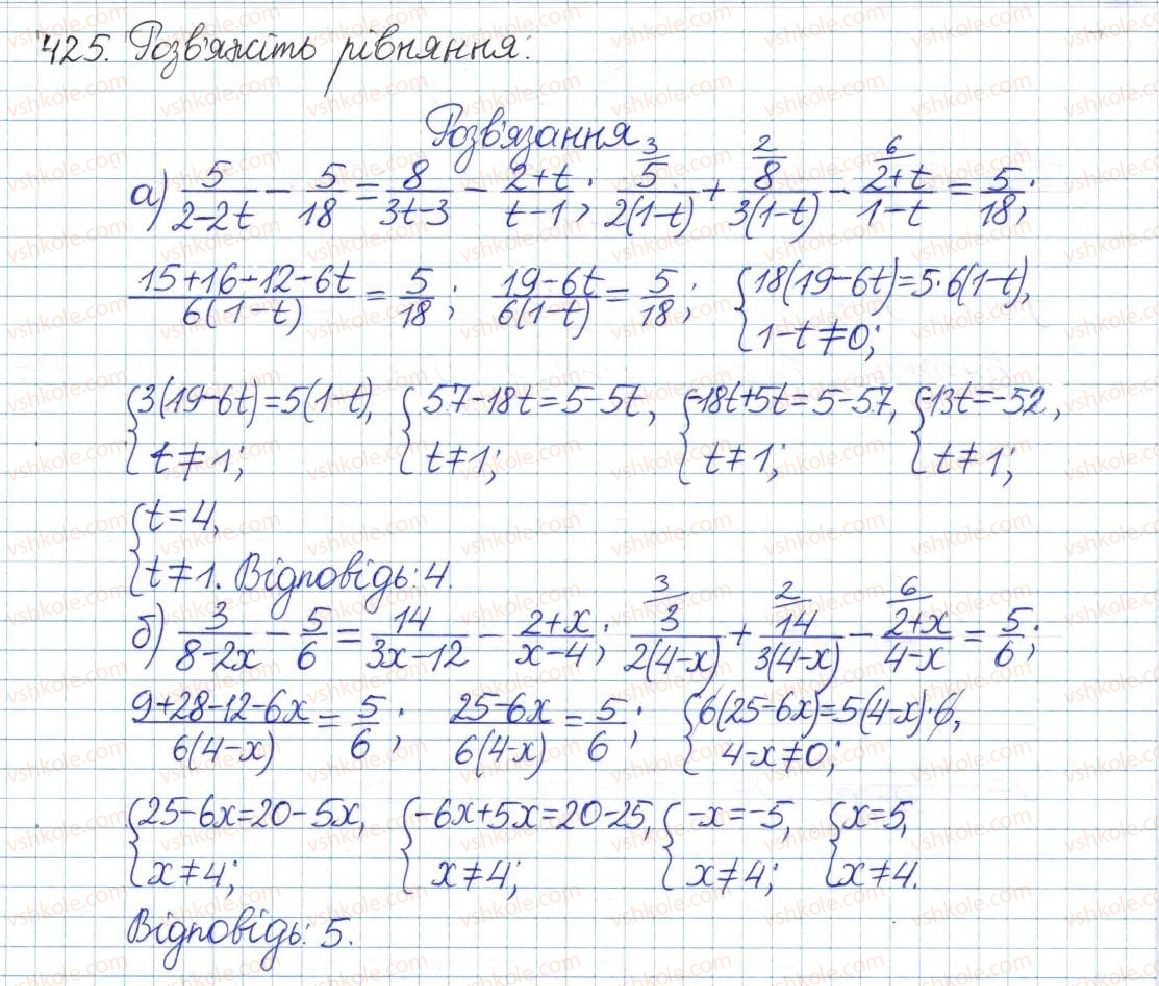 425. Розв'яжіть рівняння:
Розв'язання
а) 5/(2-2t) - 5/18 = 8/(3t-3) - (2+t)/(t-1); 3/ 5/(2(1-t)) + 2/ 8/(3(1-t)) - 6/ (2+t)/(1-t) = 5/18;
(15+16-12-6t)/(6(1-t)) = 5/18; (19-6t)/(6(1-t)) = 5/18; { 18(19-6t)=5·6(1-t), 1-t≠0;
{ 3(19-6t)=5(1-t), t≠1; { 57-18t=5-5t, t≠1; { -18t+5t=5-57, t≠1; { -13t=-52, t≠1;
{ t=4, t≠1. Відповідь: 4.
б) 3/(8-2x) - 5/6 = 14/(3x-12) - (2+x)/(x-4); 3/ 3/(2(4-x)) + 2/ 14/(3(4-x)) - 6/ (2+x)/(4-x) = 5/6;
(9+28-12-6x)/(6(4-x)) = 5/6; (25-6x)/(6(4-x)) = 5/6; { 6(25-6x)=5(4-x)·6, 4-x≠0;
{ 25-6x=20-5x, x≠4; { -6x+5x=20-25, x≠4; { -x=-5, x≠4; { x=5, x≠4.
Відповідь: 5.
vshkole.com